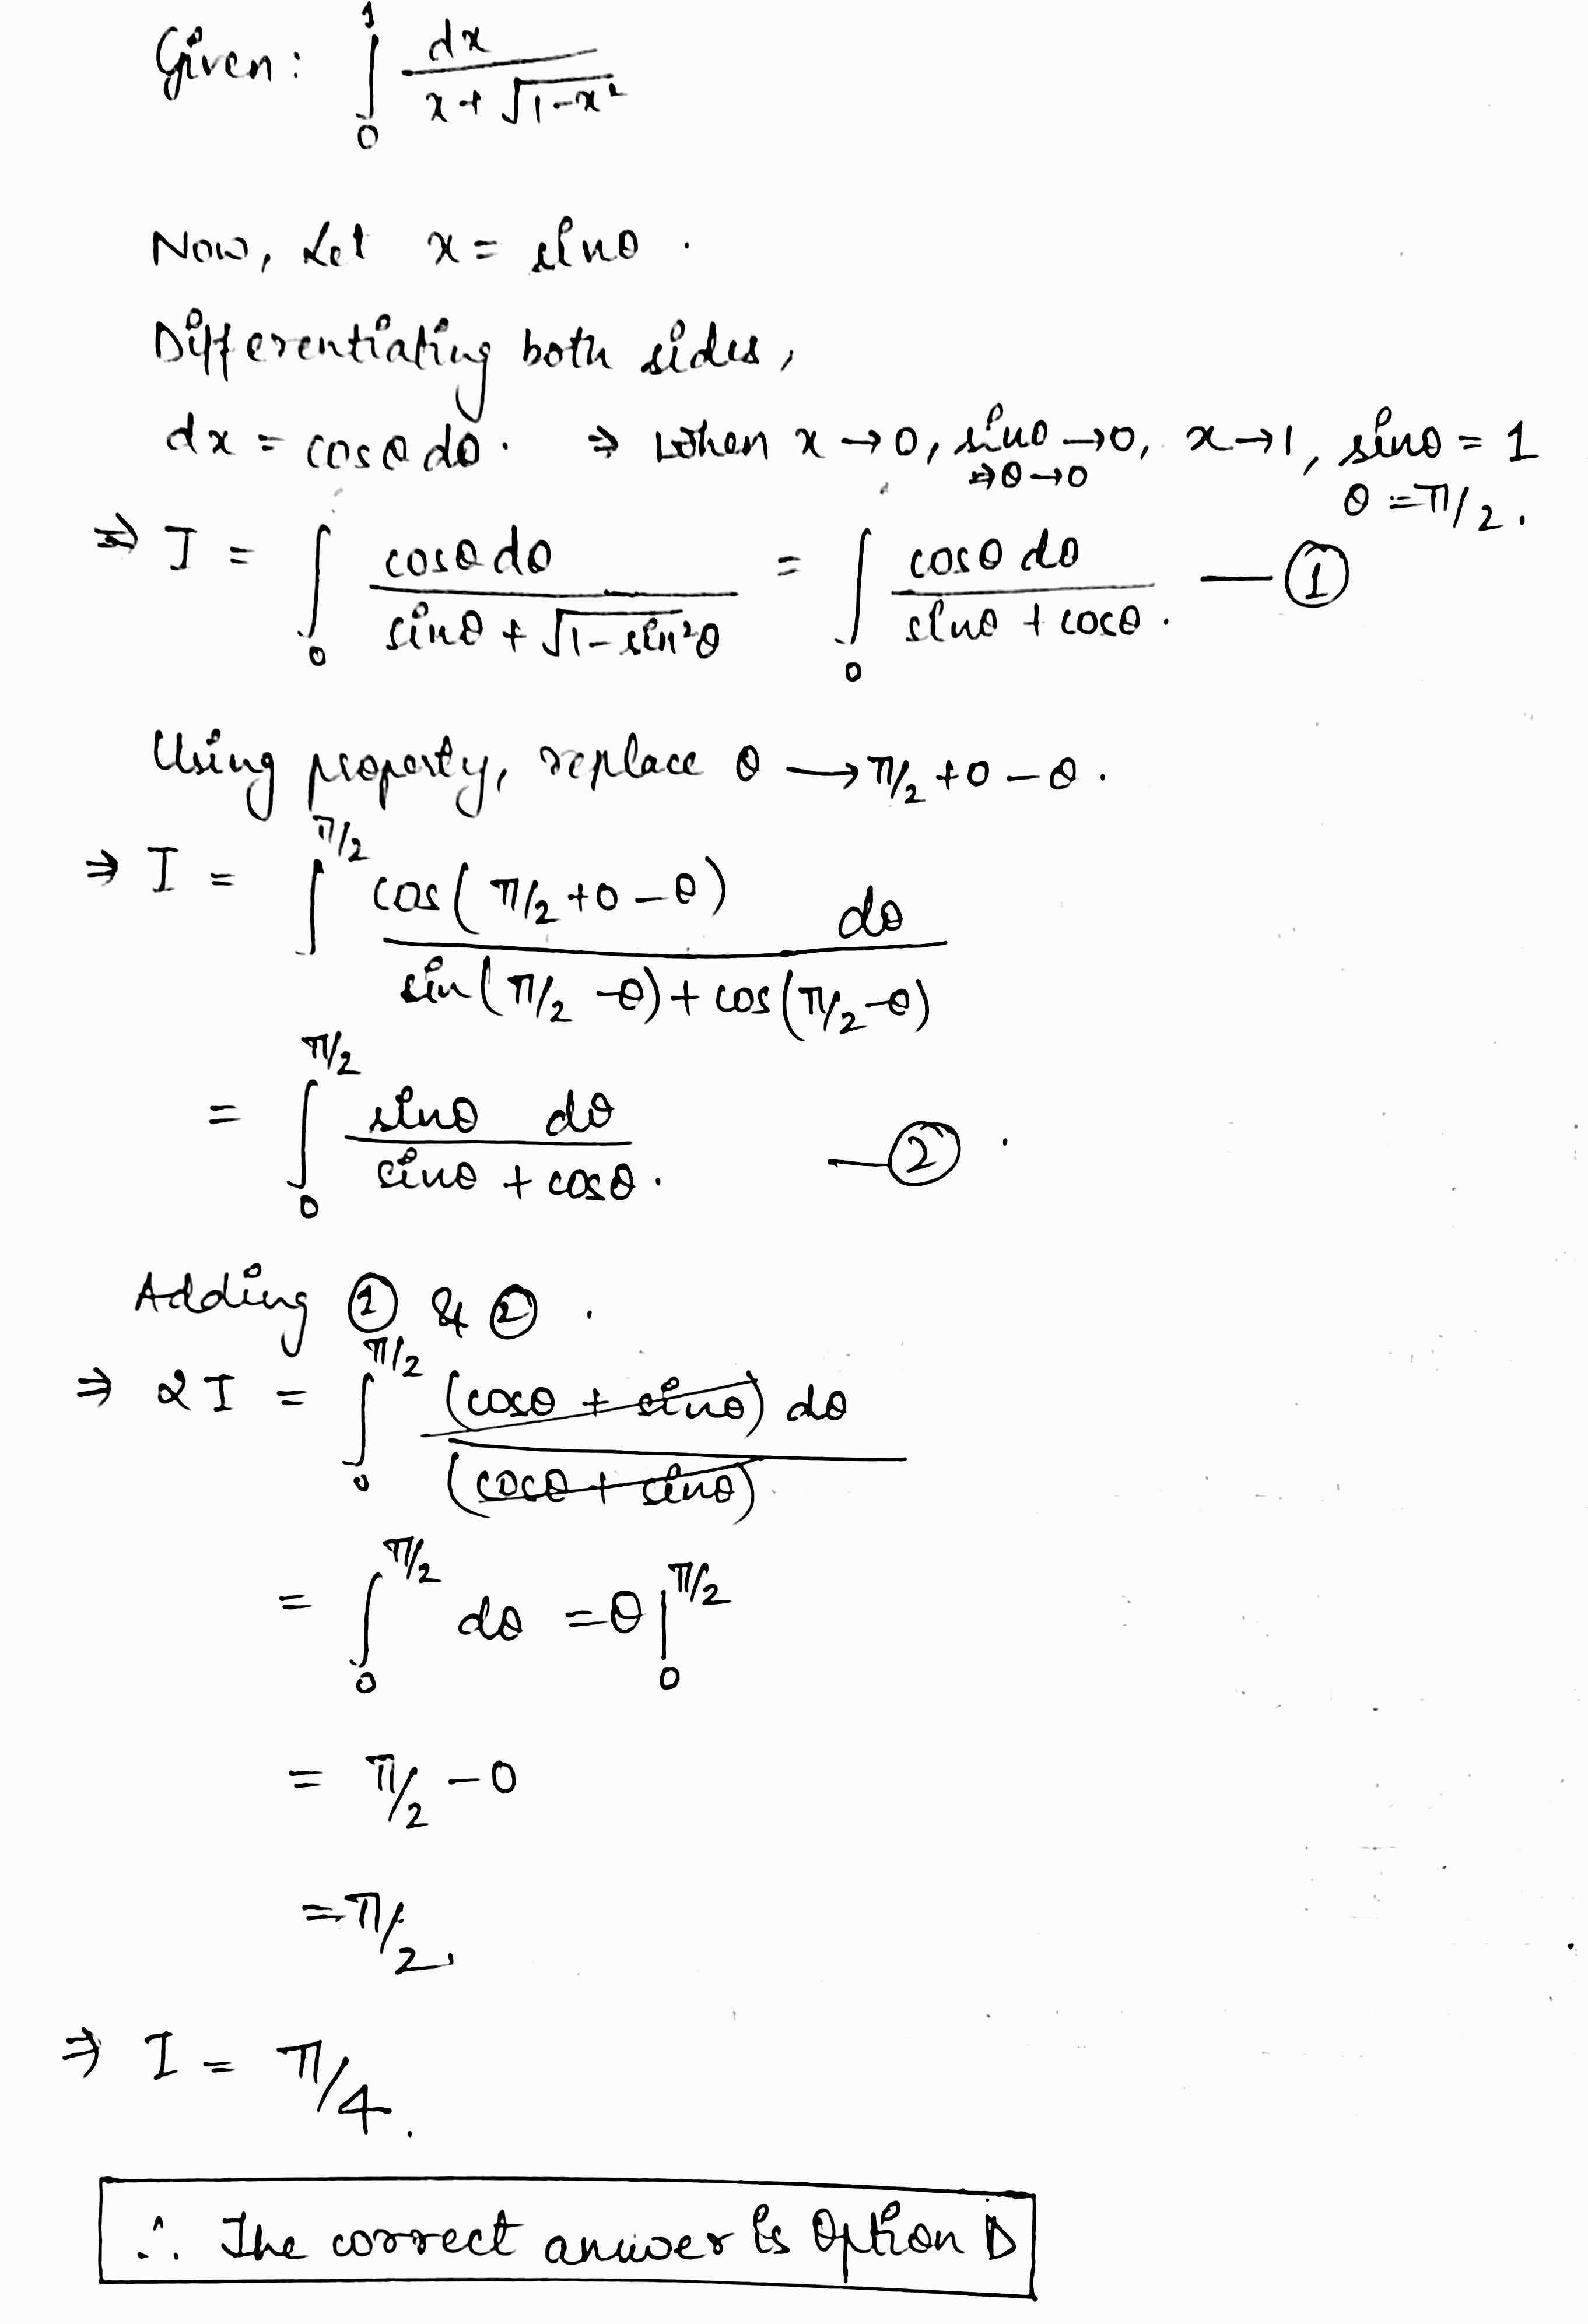 Given: ∫₀¹ dx / (x + √(1-x²))
Now, Let x = sinθ .
Differentiating both sides,
dx = cosθ dθ. ⇒ When x → 0, sinθ → 0, x → 1, sinθ = 1
⇒ θ → 0 θ = π/2.
⇒ I = ∫₀ cosθ dθ / (sinθ + √(1-sin²θ)) = ∫₀ cosθ dθ / (sinθ + cosθ) . — ①
Using property, replace θ → π/2 + 0 - θ .
⇒ I = ∫^(π/2) cos(π/2 + 0 - θ) dθ / (sin(π/2 - θ) + cos(π/2 - θ))
= ∫₀^(π/2) sinθ dθ / (sinθ + cosθ) . — ② .
Adding ① & ② .
⇒ 2I = ∫₀^(π/2) (cosθ + sinθ) dθ / (cosθ + sinθ)
= ∫₀^(π/2) dθ = θ |₀^(π/2)
= π/2 - 0
= π/2.
⇒ I = π/4.
∴ The correct answer is Option D